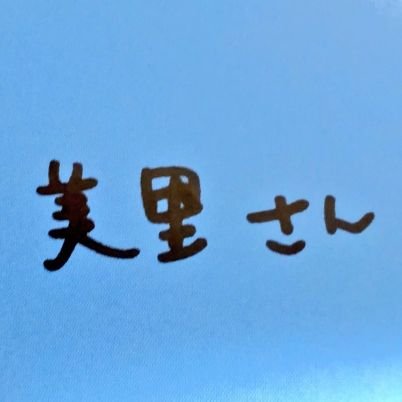 美里さん